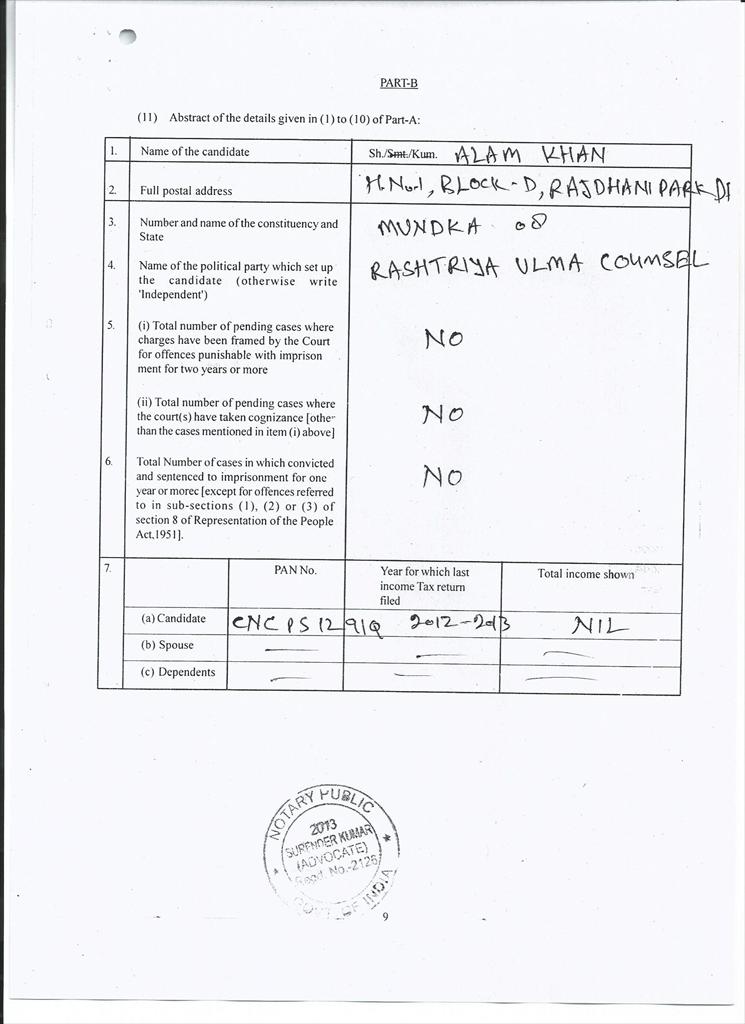 PART-B
(11) Abstract of the details given in (1) to (10) of Part-A:
1. Name of the candidate Sh./Smt./Kum. ALAM KHAN
2. Full postal address H.No-1, BLOCK-D, RAJDHANI PARK
3. Number and name of the constituency and MUNDKA 08
State
4. Name of the political party which set up RASHTRIYA ULMA COUMSEL
the candidate (otherwise write
'Independent')
5. (i) Total number of pending cases where NO
charges have been framed by the Court
for offences punishable with imprison
ment for two years or more
(ii) Total number of pending cases where NO
the court(s) have taken cognizance [other
than the cases mentioned in item (i) above]
6. Total Number of cases in which convicted NO
and sentenced to imprisonment for one
year or morec [except for offences referred
to in sub-sections (1), (2) or (3) of
section 8 of Representation of the People
Act,1951].
7. PAN No. Year for which last Total income shown
income Tax return
filed
(a) Candidate CNCPS1291Q 2012-2013 NIL
(b) Spouse
(c) Dependents
NOTARY PUBLIC
2013
SURENDER KUMAR
(ADVOCATE)
Regd. No.-2126
GOVT. OF INDIA
9